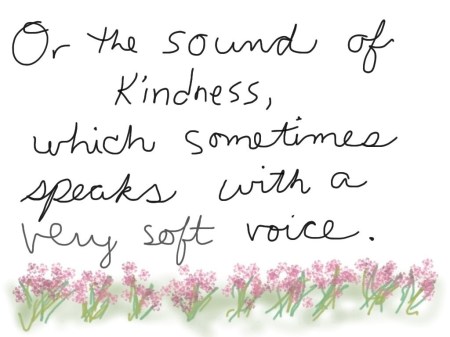 Or the sound of
Kindness,
which sometimes
speaks with a
very soft voice.